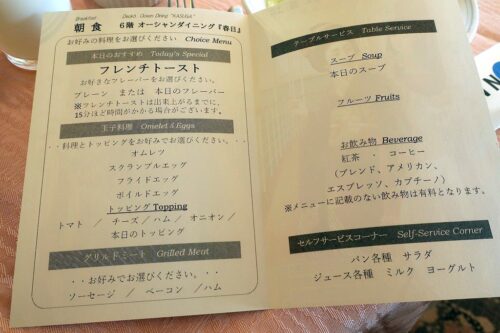 Breakfast
朝食
Deck6 Ocean Dining "KASUGA"
6階 オーシャンダイニング『春日』
お好みの料理をお選びください Choice Menu
本日のおすすめ Today's Special
フレンチトースト
お好きなフレーバーをお選びください。
プレーン または 本日のフレーバー
※フレンチトーストは出来上がるまでに、
15分ほど時間がかかる場合がございます。
玉子料理 Omelet & Eggs
・・料理とトッピングをお好みでお選びください。・・
オムレツ
スクランブルエッグ
フライドエッグ
ボイルドエッグ
トッピング Topping
トマト / チーズ / ハム / オニオン /
本日のトッピング
グリルドミート Grilled Meat
・・お好みでお選びください。・・
ソーセージ / ベーコン / ハム
テーブルサービス Table Service
スープ Soup
本日のスープ
フルーツ Fruits
お飲み物 Beverage
紅茶 ・ コーヒー
(ブレンド、アメリカン、
エスプレッソ、カプチーノ)
※メニューに記載のない飲み物は有料となります。
セルフサービスコーナー Self-Service Corner
パン各種 サラダ
ジュース各種 ミルク ヨーグルト